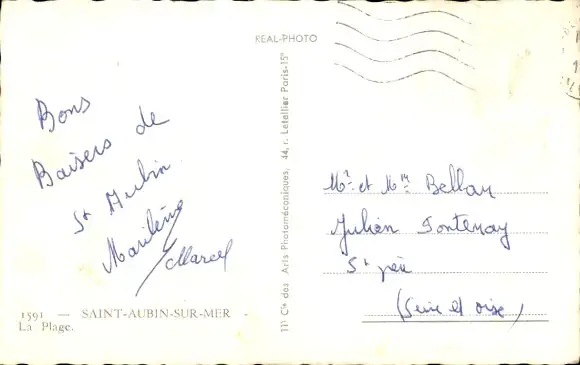 REAL-PHOTO
Bons
Baisers de
St Aubin
Marilène
Marcel
1591 — SAINT-AUBIN-SUR-MER -
La Plage.
111 Cie des Arts Photomécaniques, 44, r. Letellier Paris-15e
Mr et Mme Bellan
Julien Fontenay
St
(Seine et oise)